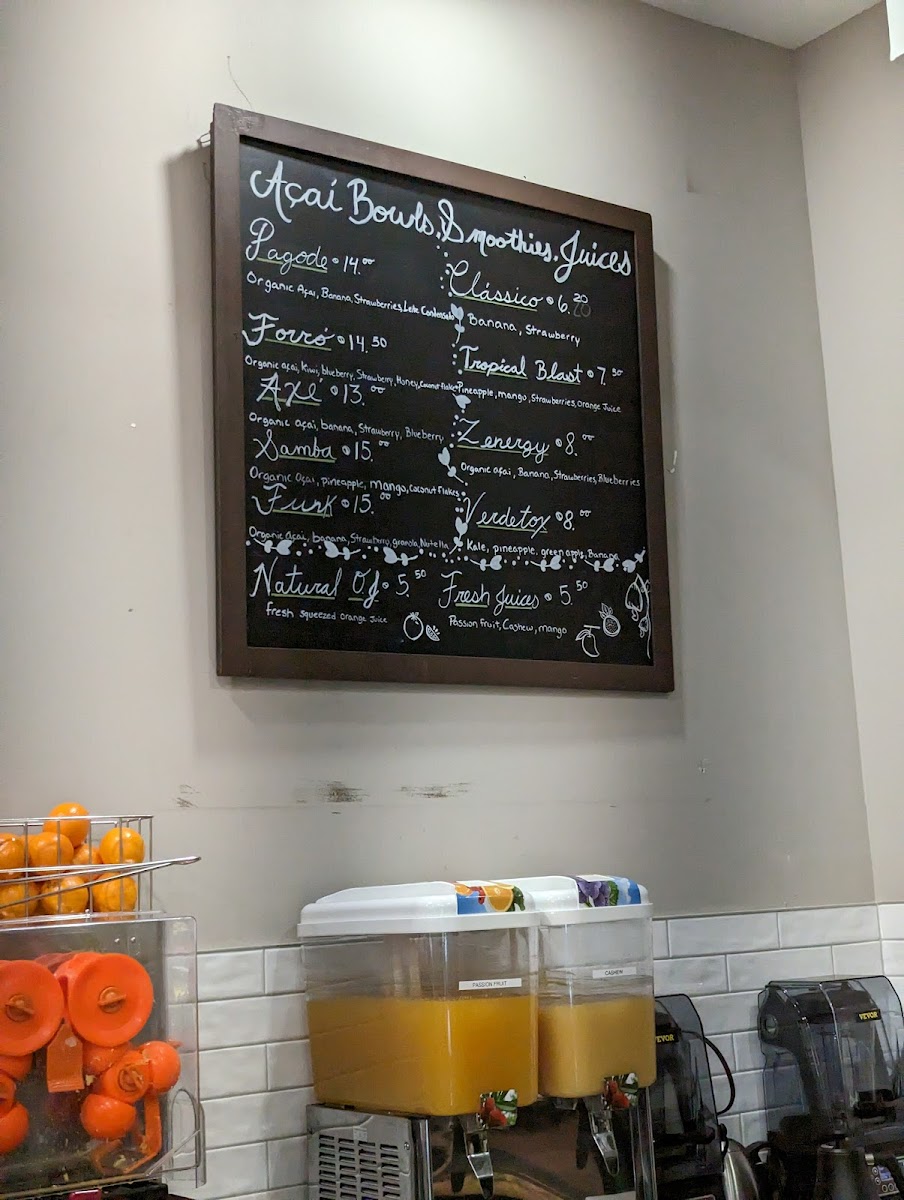 Açaí Bowls. Smoothies. Juices
Pagode • 14.00
Organic Açai, Banana, Strawberries, Leite Condensado
Forró • 14.50
Organic açai, Kiwi, blueberry, Strawberry, Honey, Coconut flakes
AXÉ • 13.00
Organic açai, banana, Strawberry, Blueberry
Samba • 15.00
Organic Açai, pineapple, mango, Coconut flakes
Funk • 15.00
Organic Açai, banana, Strawberry, granola, Nutella
Clássico • 6.20
Banana, Strawberry
Tropical Blast • 7.50
Pineapple, mango, Strawberries, Orange Juice
Zenergy • 8.00
Organic açai, Banana, Strawberries, Blueberries
Verdetox • 8.00
Kale, pineapple, green apple, Banana
Natural OJ • 5.50
fresh squeezed orange Juice
Fresh Juices • 5.50
Passion fruit, Cashew, mango
PASSION FRUIT
CASHEW
VEVOR
VEVOR